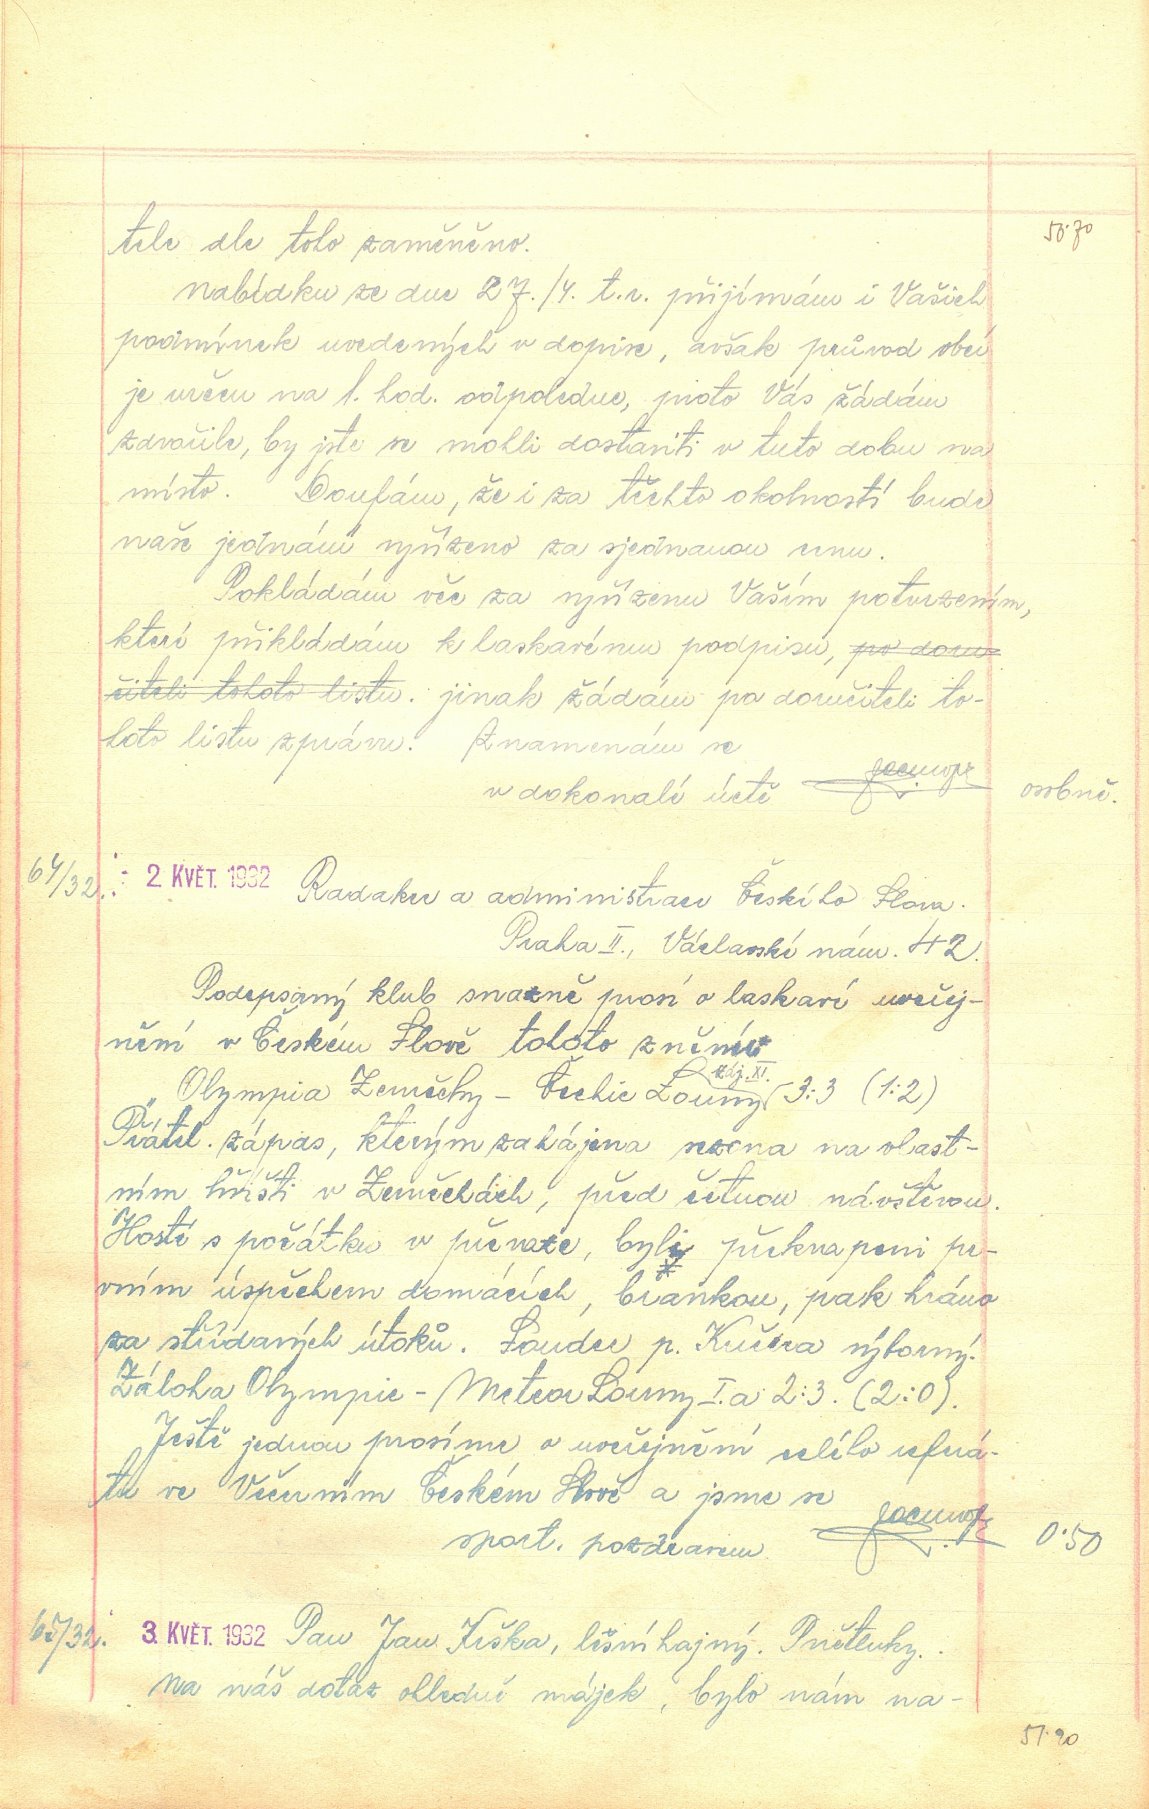 50·70
tele dle toho zaměněno.
Nabídku ze dne 27./4. t.r. přijímám i Vašich
podmínek uvedených v dopise, avšak průvod obcí
je určen na 1. hod. odpoledne, proto Vás žádám
zdvořile, by jste se mohli dostaviti v tuto dobu na
místo. Doufám, že i za těchto okolností bude
naše jednání vyřízeno za sjednanou cenu.
Pokládám věc za vyřízenu Vaším potvrzením,
které přikládám k laskavému podpisu, po doru-
čiteli tohoto listu. jinak žádám po doručiteli to-
hoto listu zprávu. Znamenám se
v dokonalé úctě
osobně.
64/32. 2. KVĚT. 1932 Radakce a administrace Českého Slova.
Praha II., Václavské nám. 42.
Podepsaný klub snažně prosí o laskavé uveřej-
nění v Českém Slově tohoto znění:
záj. XI.
„Olympia Zeměchy – Čechie Louny 3:3 (1:2)
Přátel. zápas, kterým zahájena sezona na vlast-
ním hřišti v Zeměchách, před četnou návštěvou.
Hosté s počátku v převaze, byli překvapeni pr-
vním úspěchem domácích, brankou, pak hráno
za střídavých útoků. Soudce p. Kučera výborný.
Záloha Olympie – Meteor Louny I.a 2:3. (2:0).
Ještě jednou prosíme o uveřejnění celého referá-
tu ve Večerním Českém Slově a jsme se
sport. pozdravem
0·50
65/32. 3. KVĚT. 1932 Pan Jan Krška, lesní hajný. Pnětluky.
Na náš dotaz ohledně májek, bylo nám na-
51·20